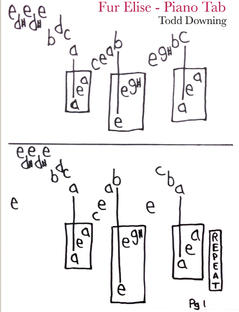 Fur Elise - Piano Tab
Todd Downing
e e e
d# d#
b d c
a
c e a b
e g# b c
a e a
e e g#
a e a
e e e
d# d#
b d c
a
e
c e a b
e
c b a
a e a
e e g#
a e a
REPEAT
Pg 1